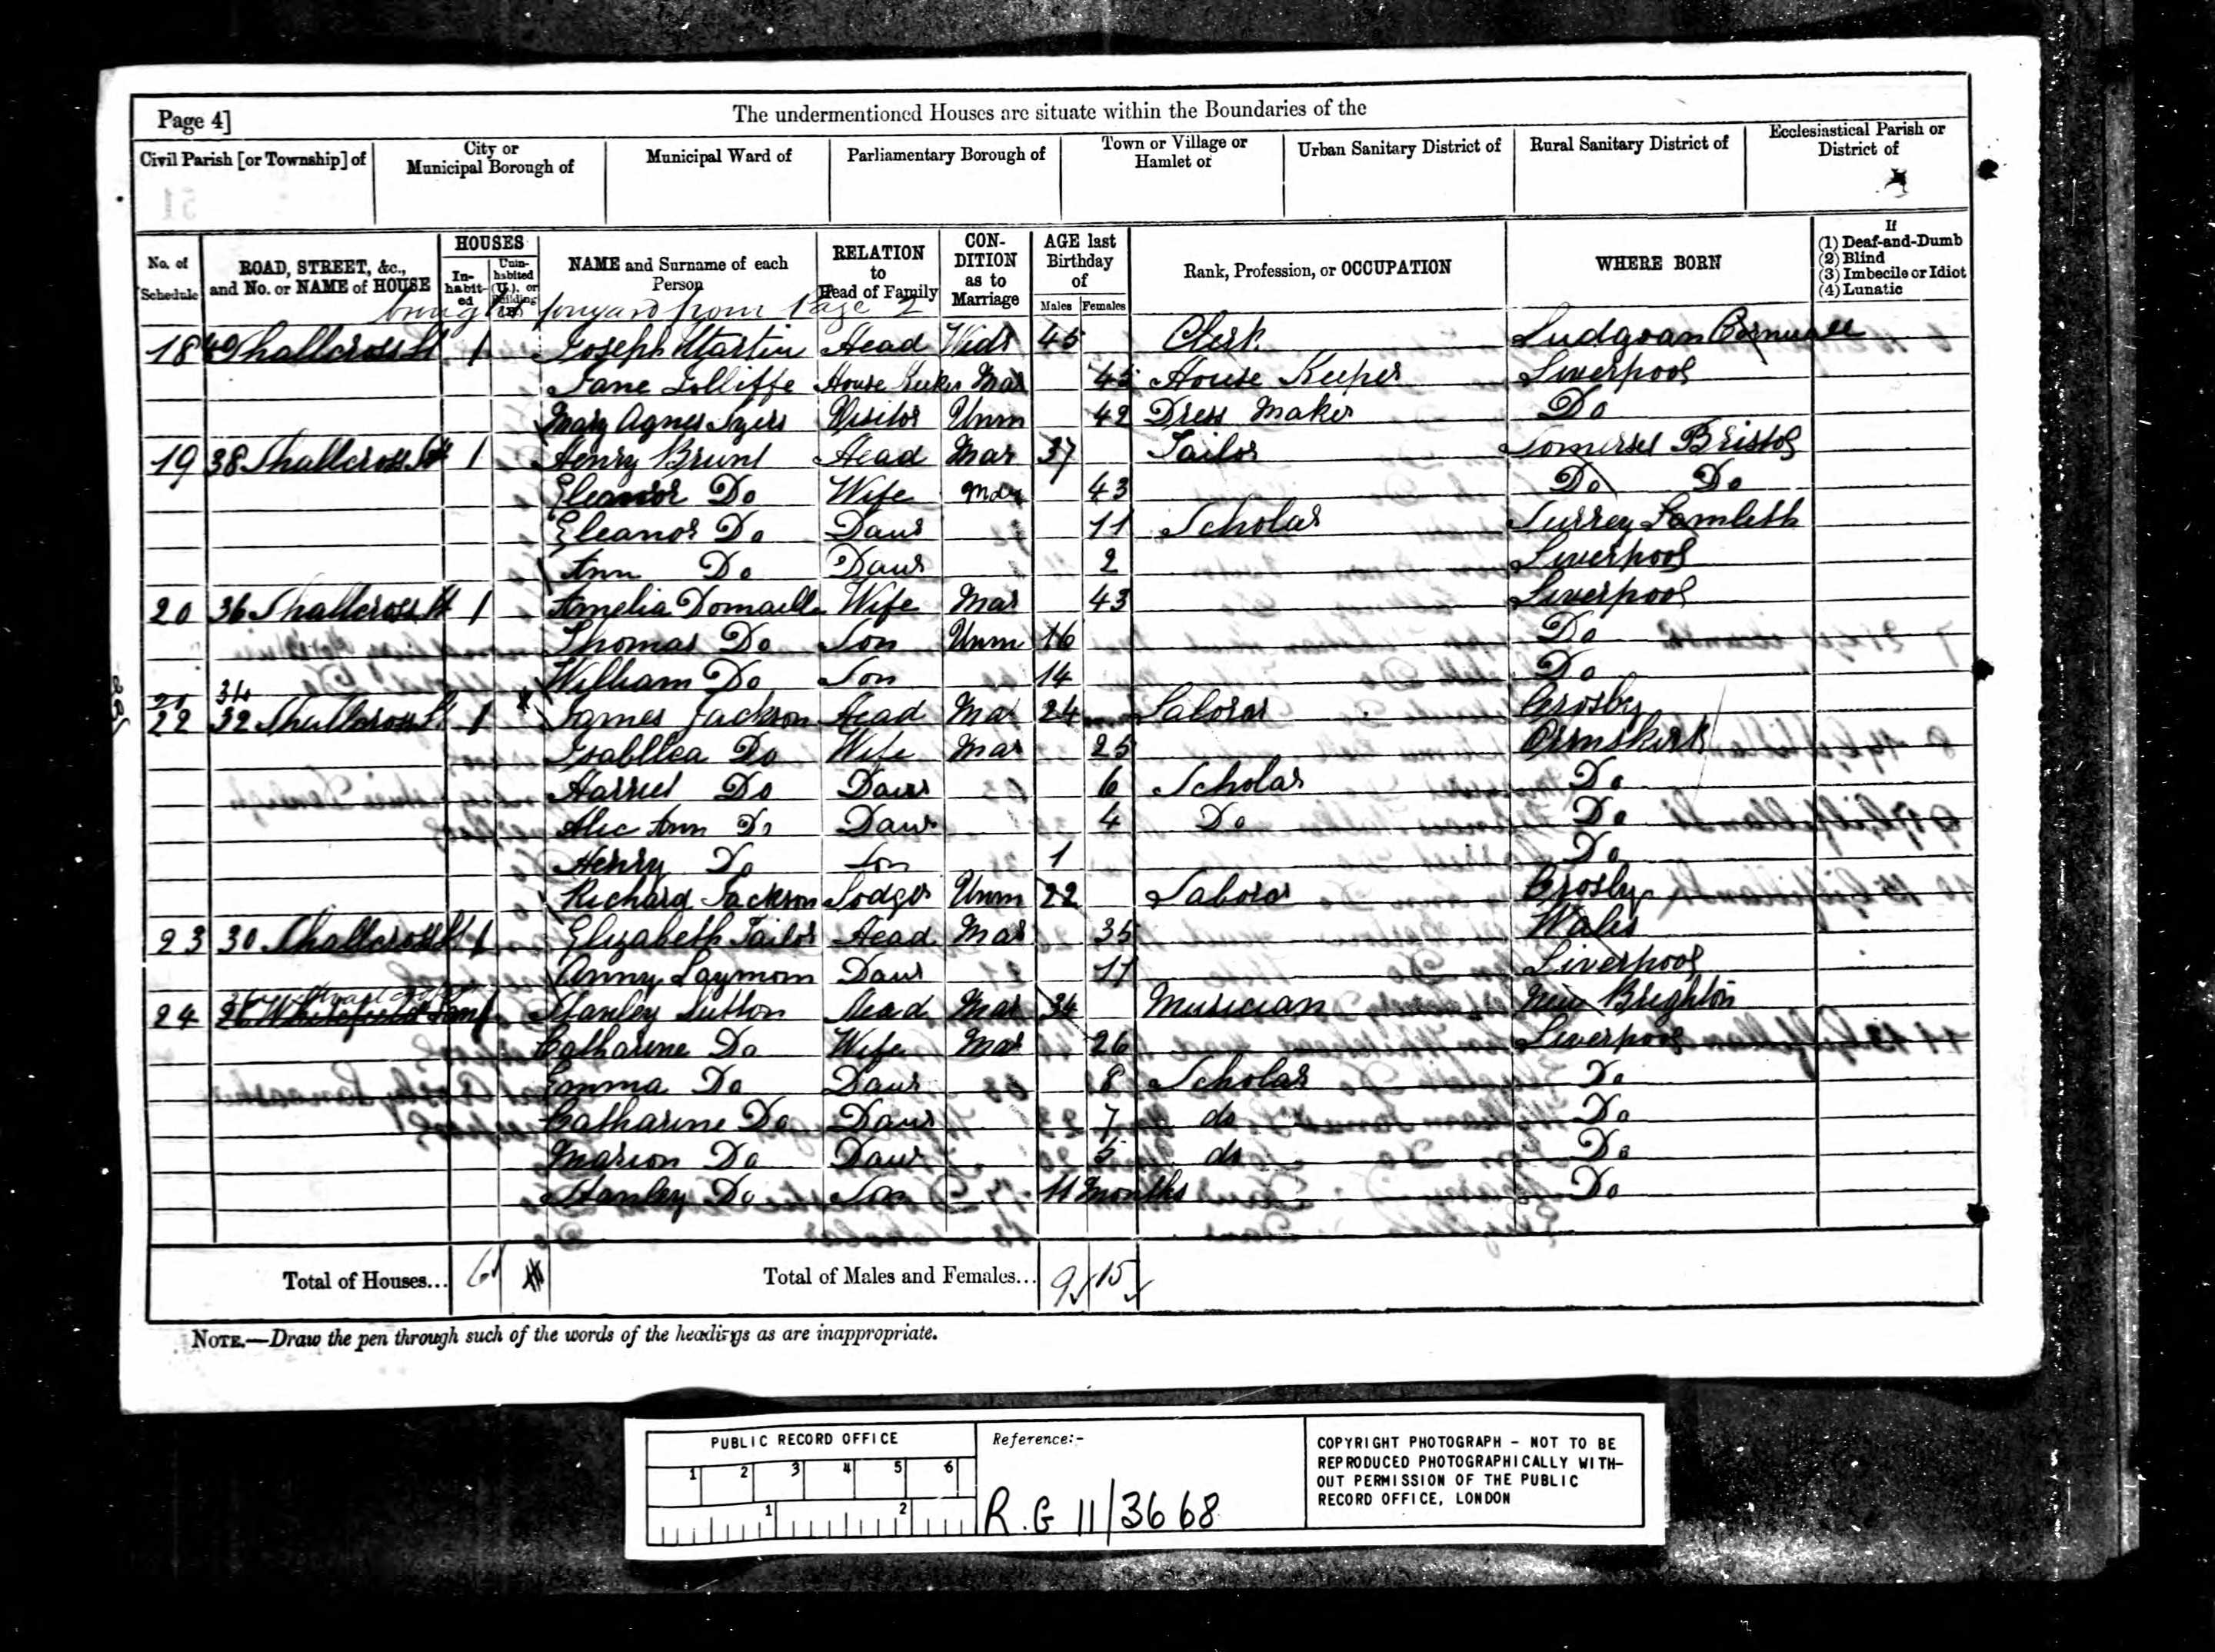 Page 4]
The undermentioned Houses are situate within the Boundaries of the
Civil Parish [or Township] of
City or Municipal Borough of
Municipal Ward of
Parliamentary Borough of
Town or Village or Hamlet of
Urban Sanitary District of
Rural Sanitary District of
Ecclesiastical Parish or District of
No. of Schedule
ROAD, STREET, &c., and No. or NAME of HOUSE
HOUSES
In-habit-ed
Unin-habited (U.), or Building (B.)
NAME and Surname of each Person
RELATION to Head of Family
CON-DITION as to Marriage
AGE last Birthday of
Males Females
Rank, Profession, or OCCUPATION
WHERE BORN
If
(1) Deaf-and-Dumb
(2) Blind
(3) Imbecile or Idiot
(4) Lunatic
brought forward from Page 2
18 40 Shallcross St 1 Joseph Martin Head Widr 45 Clerk Ludgvan Cornwall
Jane Jolliffe House Keeker Mar 45 House Keeper Liverpool
Mary Agnes Visitor Unm 42 Dress Maker Do
19 38 Shallcross St 1 Henry Brunt Head Mar 37 Tailor Somerset Bristol
Eleanor Do Wife Mar 43 Do Do
Eleanor Do Daur 11 Scholar Surrey Lambeth
Ann Do Daur 2 Liverpool
20 36 Shallcross St 1 Amelia Domaille Wife Mar 43 Liverpool
Thomas Do Son Unm 16 Do
William Do Son 14 Do
21 34
22 32 Shallcross St 1 James Jackson Head Mar 24 Laborar Crosby
Isabllea Do Wife Mar 25 Ormskirk
Harriet Do Daur 6 Scholar Do
Alic Ann Do Daur 4 Do Do
Henry Do Son 1 Do
Richard Jackson Lodger Unm 22 Laborar Crosby
23 30 Shallcross St 1 Elizabeth Tailor Head Mar 35 Wales
Anny Laymom Daur 11 Liverpool
24 Whitefield Lane 1 Stanley Sutton Head Mar 34 Musician New Brighton
Catharine Do Wife Mar 26 Liverpool
Emma Do Daur 8 Scholar Do
Catharine Do Daur 7 do Do
Marion Do Daur 5 do Do
Stanley Do Son 11 months Do
Total of Houses... 6
Total of Males and Females... 9 15
NOTE.—Draw the pen through such of the words of the headings as are inappropriate.
PUBLIC RECORD OFFICE
1 2 3 4 5 6
1 2
Reference:-
R.G 11/3668
COPYRIGHT PHOTOGRAPH - NOT TO BE
REPRODUCED PHOTOGRAPHICALLY WITH-
OUT PERMISSION OF THE PUBLIC
RECORD OFFICE, LONDON